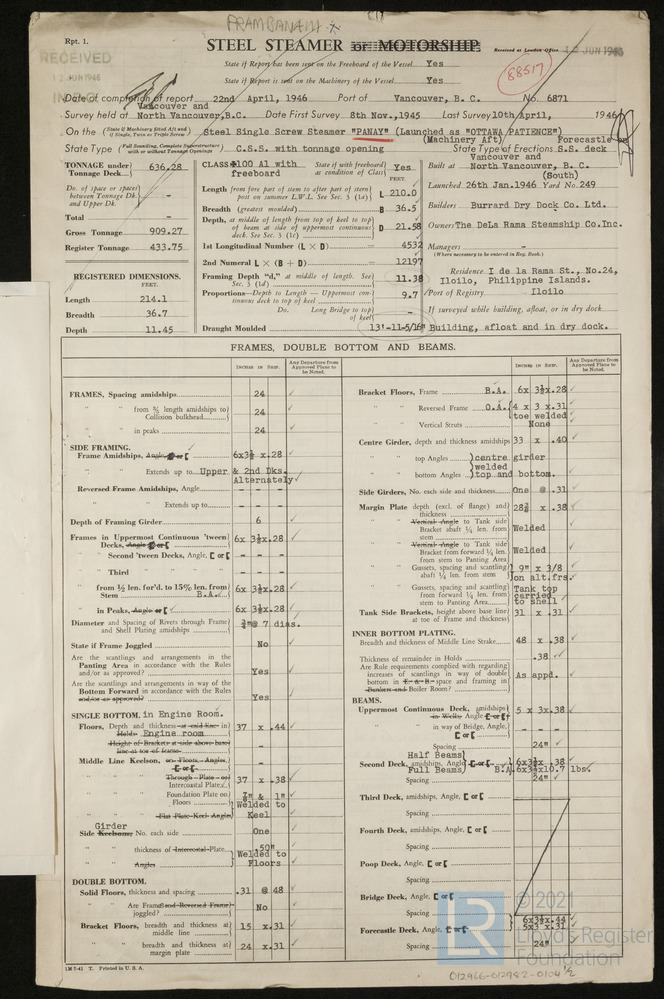 PRAMBANAN
Rpt. 1.
STEEL STEAMER or MOTORSHIP
Received at London Office 12 JUN 1946
RECEIVED
12 JUN 1946
State if Report has been sent on the Freeboard of the Vessel Yes
State if Report is sent on the Machinery of the Vessel Yes
88517
Date of completion of report 22nd April, 1946 Port of Vancouver, B. C. No. 6871
Vancouver and
Survey held at North Vancouver, B.C. Date First Survey 8th Nov., 1945 Last Survey 10th April, 1946
On the (State if Machinery fitted Aft and if Single, Twin or Triple Screw) Steel Single Screw Steamer "PANAY" (Launched as "OTTAWA PATIENCE")
(Machinery Aft) Forecastle on
State Type (Full Scantling, Complete Superstructure with or without Tonnage Openings) C.S.S. with tonnage opening State Type of Erections S.S. deck
TONNAGE under Tonnage Deck 636.28
Do. of space or spaces between Tonnage Dk. and Upper Dk. -
Total -
Gross Tonnage 909.27
Register Tonnage 433.75
REGISTERED DIMENSIONS.
FEET.
Length 214.1
Breadth 36.7
Depth 11.45
CLASS 100 A1 with freeboard State if with freeboard as condition of Class Yes
FEET.
Length from fore part of stem to after part of stern post on summer L.W.L. See Sec. 3 (1a) L 210.0
Breadth (greatest moulded) B 36.5
Depth, at middle of length from top of keel to top of beam at side of uppermost continuous deck. See Sec. 3 (1c) D 21.58
1st Longitudinal Number (L × D) 4532
2nd Numeral L × (B + D) 12197
Framing Depth "d," at middle of length. See Sec. 3 (1d) 11.38
Proportions—Depth to Length—Uppermost continuous deck to top of keel 9.7
Do. Long Bridge to top of keel -
Draught Moulded 13'-11-5/16"
Vancouver and
Built at North Vancouver, B. C.
(South)
Launched 26th Jan. 1946 Yard No. 249
Builders Burrard Dry Dock Co. Ltd.
Owners The DeLa Rama Steamship Co. Inc.
Managers -
(Where necessary to be entered in Reg. Book.)
Residence I de la Rama St., No.24,
Iloilo, Philippine Islands.
Port of Registry Iloilo
If surveyed while building, afloat, or in dry dock
Building, afloat and in dry dock.
FRAMES, DOUBLE BOTTOM AND BEAMS.
INCHES IN SHIP.
Any Departure from Approved Plans to be Noted.
FRAMES, Spacing amidships 24
" " from ⅗ length amidships to Collision bulkhead 24
" " in peaks 24
SIDE FRAMING.
Frame Amidships, Angle or [ 6x3½ x.28
" " Extends up to Upper & 2nd Dks. Alternately
Reversed Frame Amidships, Angle - - -
" " Extends up to - - -
Depth of Framing Girder 6
Frames in Uppermost Continuous 'tween Decks, Angle or [ 6x 3½x.28
" Second 'tween Decks, Angle, [ or [ - - -
" Third " " " - - -
" from ½ len. for'd. to 15% len. from Stem B.A. 6x 3½x.28
" in Peaks, Angle or [ 6x 3½x.28
Diameter and Spacing of Rivets through Frame and Shell Plating amidships ¾"@ 7 dias.
State if Frame Joggled No
Are the scantlings and arrangements in the Panting Area in accordance with the Rules and/or as approved? Yes
Are the scantlings and arrangements in way of the Bottom Forward in accordance with the Rules and/or as approved? Yes
SINGLE BOTTOM. in Engine Room.
Floors, Depth and thickness at mid line in Holds Engine room 37 x .44
Height of Brackets at side above base line at toe of frame -
Middle Line Keelson, on Floors, Angles, [ or [ -
" " Through Plate or Intercoastal Plate 37 x .38
" " Foundation Plate on Floors ⅞" & 1" Welded to
" " Flat Plate Keel Angles Keel
Girder
Side Keelsons, No. each side One
" " thickness of Intercostal Plate .50" Welded to
" " Angles Floors
DOUBLE BOTTOM.
Solid Floors, thickness and spacing .31 @ 48
" " Are Frame and Reversed Frame joggled? No
Bracket Floors, breadth and thickness at middle line 15 x.31
" " breadth and thickness at margin plate 24 x.31
INCHES IN SHIP.
Any Departure from Approved Plans to be Noted.
Bracket Floors, Frame B.A. 6x 3½x.28
" " Reversed Frame O.A. 4 x 3 x.31 toe welded
" " Vertical Struts None
Centre Girder, depth and thickness amidships 33 x .40
" " top Angles centre girder welded
" " bottom Angles top and bottom.
Side Girders, No. each side and thickness One @ .31
Margin Plate depth (excl. of flange) and thickness x .38
" " Vertical Angle to Tank side Bracket abaft ¼ len. from stem Welded
" " Vertical Angle to Tank side Bracket from forward ¼ len. from stem to Panting Area Welded
" " Gussets, spacing and scantling abaft ¼ len. from stem 9" x 3/8 on alt.frs.
" " Gussets, spacing and scantling from forward ¼ len. from stem to Panting Area Tank top carried to shell
Tank Side Brackets, height above base line at toe of Frame and thickness 31 x .31
INNER BOTTOM PLATING.
Breadth and thickness of Middle Line Strake 48 x .38
Thickness of remainder in Holds .38
Are Rule requirements complied with regarding increases of scantlings in way of double bottom in E. & B. space and framing in Bunkers and Boiler Room? As appd.
BEAMS.
Uppermost Continuous Deck, amidships in Wells, Angle [ or [ 5 x 3x.38
" " in way of Bridge, Angle, [ or [ - - -
Spacing 24"
Half Beams
Second Deck, amidships, Angle [ or [ 6x3½x .38
Full Beams B.A. 6x3½x10.7 lbs.
Spacing 24"
Third Deck, amidships, Angle, [ or [
Spacing
Fourth Deck, amidships, Angle, [ or [
Spacing
Poop Deck, Angle, [ or [
Spacing
Bridge Deck, Angle, [ or [
Spacing
Forecastle Deck, Angle, [ or [ 6x3½x.44 5x3 x.31
Spacing 24"
1M 7-41 T. Printed in U. S. A.
© 2021
LR
Lloyd's Register
Foundation
012966-012982-0104 ½